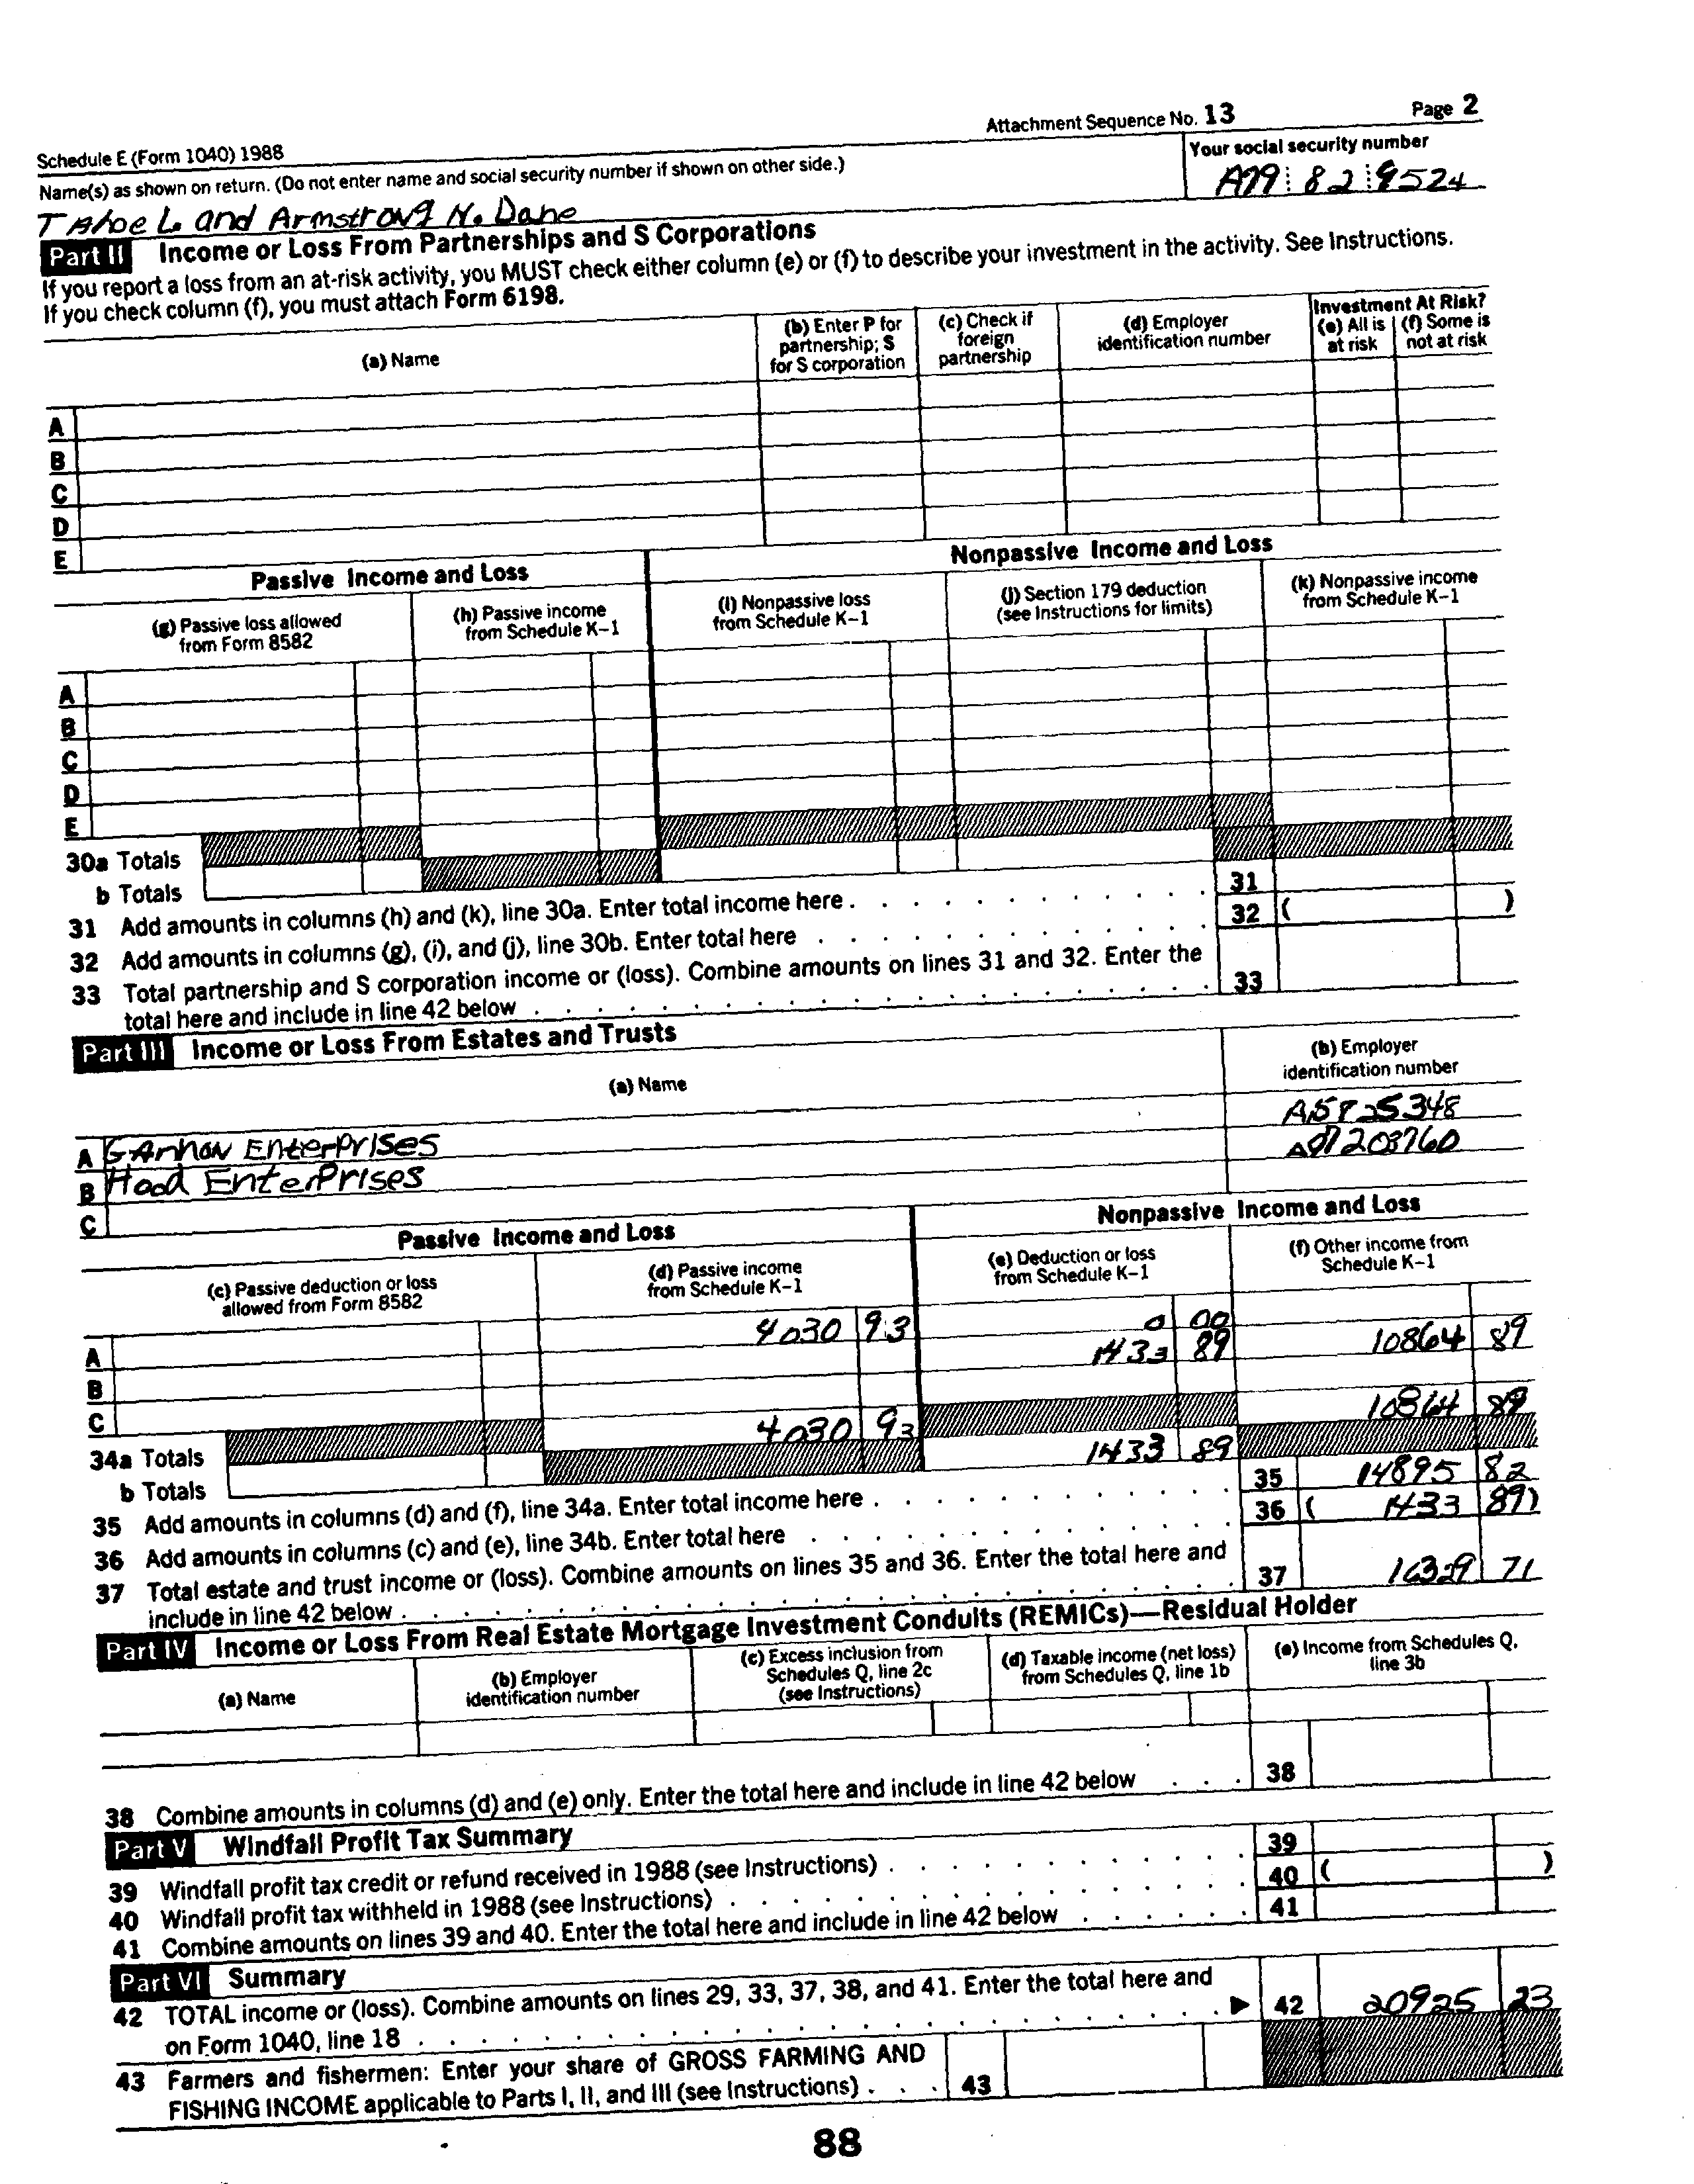 Attachment Sequence No. 13 Page 2
Schedule E (Form 1040) 1988
Name(s) as shown on return. (Do not enter name and social security number if shown on other side.)
Your social security number
L. and Armstrong N. Dane
82 9524
Part II Income or Loss From Partnerships and S Corporations
If you report a loss from an at-risk activity, you MUST check either column (e) or (f) to describe your investment in the activity. See Instructions.
If you check column (f), you must attach Form 6198.
(a) Name
(b) Enter P for partnership; S for S corporation
(c) Check if foreign partnership
(d) Employer identification number
Investment At Risk?
(e) All is at risk
(f) Some is not at risk
A
B
C
D
E
Passive Income and Loss
Nonpassive Income and Loss
(g) Passive loss allowed from Form 8582
(h) Passive income from Schedule K–1
(i) Nonpassive loss from Schedule K–1
(j) Section 179 deduction (see Instructions for limits)
(k) Nonpassive income from Schedule K–1
A
B
C
D
E
30a Totals
b Totals
31 Add amounts in columns (h) and (k), line 30a. Enter total income here . . . . . . . . . . 31
32 Add amounts in columns (g), (i), and (j), line 30b. Enter total here . . . . . . . . . . 32 ( )
33 Total partnership and S corporation income or (loss). Combine amounts on lines 31 and 32. Enter the
total here and include in line 42 below . . . . . . . . . . 33
Part III Income or Loss From Estates and Trusts
(a) Name
(b) Employer identification number
A Enterprises
B Hood Enterprises A97203760
C
Passive Income and Loss
Nonpassive Income and Loss
(c) Passive deduction or loss allowed from Form 8582
(d) Passive income from Schedule K–1
(e) Deduction or loss from Schedule K–1
(f) Other income from Schedule K–1
A 4030 93 0 00
B 1433 89 10864 89
C
34a Totals 4030 93 10864 89
b Totals 1433 89
35 Add amounts in columns (d) and (f), line 34a. Enter total income here . . . . . . . . . . 35 14895 82
36 Add amounts in columns (c) and (e), line 34b. Enter total here . . . . . . . . . . 36 ( 1433 89)
37 Total estate and trust income or (loss). Combine amounts on lines 35 and 36. Enter the total here and
include in line 42 below . . . . . . . . . . 37 16329 71
Part IV Income or Loss From Real Estate Mortgage Investment Conduits (REMICs)—Residual Holder
(a) Name
(b) Employer identification number
(c) Excess inclusion from Schedules Q, line 2c (see Instructions)
(d) Taxable income (net loss) from Schedules Q, line 1b
(e) Income from Schedules Q, line 3b
38 Combine amounts in columns (d) and (e) only. Enter the total here and include in line 42 below . . . 38
Part V Windfall Profit Tax Summary
39 Windfall profit tax credit or refund received in 1988 (see Instructions) . . . . . . . . . . 39
40 Windfall profit tax withheld in 1988 (see Instructions) . . . . . . . . . . 40 ( )
41 Combine amounts on lines 39 and 40. Enter the total here and include in line 42 below . . . . . . 41
Part VI Summary
42 TOTAL income or (loss). Combine amounts on lines 29, 33, 37, 38, and 41. Enter the total here and
on Form 1040, line 18 . . . . . . . . . . ▶ 42 20925 23
43 Farmers and fishermen: Enter your share of GROSS FARMING AND
FISHING INCOME applicable to Parts I, II, and III (see Instructions) . . . 43
88